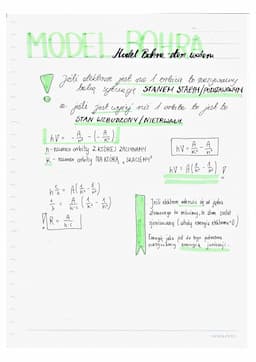 MODEL BOHRA
Model Bohra atom wodoru
Jeśli elektron jest na 1 orbicie to nazywamy
taką sytuację STANEM STAŁYM/PODSTAWOWYM
a jeśli jest wyżej niż 1 orbita to jest to
STAN WZBUDZONY/NIETRWAŁY
hν = -A/n² - (-A/k²)
n - numer orbity Z KTÓREJ ZACZYNAMY
k - numer orbity NA KTÓRĄ „SKACZEMY”
hν = A/k² - A/n²
hν = A(1/k² - 1/n²)
h c/λ = A(1/k² - 1/n²)
1/λ = A/h·c (1/k² - 1/n²)
R = A/h·c
Jeśli elektron oderwie się od jądra
atomowego to mówimy, że atom został
zjonizowany (wtedy energia elektronu = 0)
Energię jaką jest do tego potrzebna
nazywamy energią jonizacji.